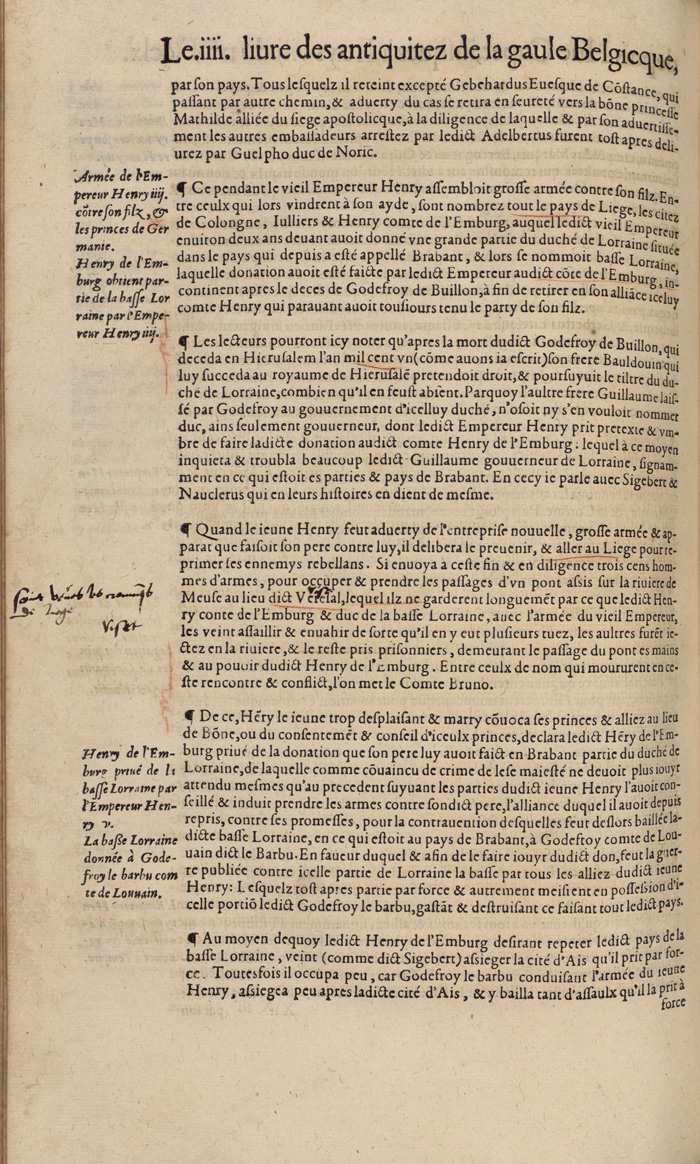 Le.iiii. liure des antiquitez de la gaule Belgicque,
par son pays. Tous lesquelz il reteint excepté Gebehardus Euesque de Cõstance, qui
passant par autre chemin, & aduerty du cas se retira en seureté vers la bõne princesse
Mathilde alliée du siege apostolicque, à la diligence de laquelle & par son aduertisse-
ment les autres embassadeurs arrestez par ledict Adelbertus furent tost apres deli-
urez par Guelpho duc de Noric.
Armée de l'Em-
pereur Henry iiij.
cõtre son filz, &
les princes de Ger
manie.
Henry de l'Em-
burg obtient par-
tie de la basse Lor
raine par l'Empe-
reur Henry iiij.
¶ Ce pendant le vieil Empereur Henry assembloit grosse armée contre son filz. En-
tre ceulx qui lors vindrent à son ayde, sont nombrez tout le pays de Liege, les citez
de Colongne, Iulliers & Henry comte de l'Emburg, auquel ledict vieil Empereur
enuiron deux ans deuant auoit donné vne grande partie du duché de Lorraine située
dans le pays qui depuis a esté appellé Brabant, & lors se nommoit basse Lorraine,
laquelle donation auoit esté faicte par ledict Empereur audict cõte de l'Emburg, in-
continent apres le deces de Godefroy de Buillon, à fin de retirer en son alliãce iceluy
comte Henry qui parauant auoit tousiours tenu le party de son filz.
¶ Les lecteurs pourront icy noter qu'apres la mort dudict Godefroy de Buillon, qui
deceda en Hierusalem l'an mil cent vn (cõme auons ia escrit) son frere Bauldouin qui
luy succeda au royaume de Hierusalẽ pretendoit droit, & poursuyuit le tiltre du du-
ché de Lorraine, combien qu'il en feust absent. Parquoy l'aultre frere Guillaume lais-
sé par Godefroy au gouuernement d'icelluy duché, n'osoit ny s'en vouloit nommer
duc, ains seulement gouuerneur, dont ledict Empereur Henry prit pretexte & vm-
bre de faire ladicte donation audict comte Henry de l'Emburg: lequel à ce moyen
inquieta & troubla beaucoup ledict Guillaume gouuerneur de Lorraine, signam-
ment en ce qui estoit es parties & pays de Brabant. En cecy ie parle auec Sigebert &
Nauclerus qui en leurs histoires en dient de mesme.
¶ Quand le ieune Henry feut aduerty de l'entreprise nouuelle, grosse armée & ap-
parat que faisoit son pere contre luy, il delibera le preuenir, & aller au Liege pour re-
primer ses ennemys rebellans. Si enuoya à ceste fin & en diligence trois cens hom-
mes d'armes, pour occuper & prendre les passages d'vn pont assis sur la riuiere de
Meuse au lieu dict lequel ilz ne garderent longuemẽt par ce que ledict Hen-
ry conte de l'Emburg & duc de la basse Lorraine, auec l'armée du vieil Empereur,
les veint assaillir & enuahir de sorte qu'il en y eut plusieurs tuez, les aultres furẽt ie-
ctez en la riuiere, & le reste pris prisonniers, demeurant le passage du pont es mains
& au pouoir dudict Henry de l'Emburg. Entre ceulx de nom qui moururent en ce-
ste rencontre & conflict, l'on met le Comte Bruno.
Viset
Henry de l'Em-
burg priué de la
basse Lorraine par
l'Empereur Hen-
ry v.
La basse Lorraine
donnée à Gode-
froy le barbu com
te de Louuain.
¶ De ce, Hẽry le ieune trop desplaisant & marry cõuoca ses princes & alliez au lieu
de Bõne, ou du consentemẽt & conseil d'iceulx princes, declara ledict Hẽry de l'Em-
burg priué de la donation que son pere luy auoit faict en Brabant partie du duché de
Lorraine, de laquelle comme cõuaincu de crime de lese maiesté ne deuoit plus iouyr
attendu mesmes qu'au precedent suyuant les parties dudict ieune Henry l'auoit con-
seillé & induit prendre les armes contre sondict pere, l'alliance duquel il auoit depuis
repris, contre ses promesses, pour la contrauention desquelles feut deslors baillée la-
dicte basse Lorraine, en ce qui estoit au pays de Brabant, à Godefroy comte de Lou-
uain dict le Barbu. En faueur duquel & afin de le faire iouyr dudict don, feut la guer-
re publiée contre icelle partie de Lorraine la basse par tous les alliez dudict ieune
Henry: Lesquelz tost apres partie par force & autrement meisient en possession d'i-
celle portiõ ledict Godefroy le barbu, gastãt & destruisant ce faisant tout ledict pays.
¶ Au moyen dequoy ledict Henry de l'Emburg desirant repeter ledict pays de la
basse Lorraine, veint (comme dict Sigebert) assieger la cité d'Ais qu'il prit par for-
ce. Toutesfois il occupa peu, car Godefroy le barbu conduisant l'armée du ieune
Henry, assiegea peu apres ladicte cité d'Ais, & y bailla tant d'assaulx qu'il la prit à
force